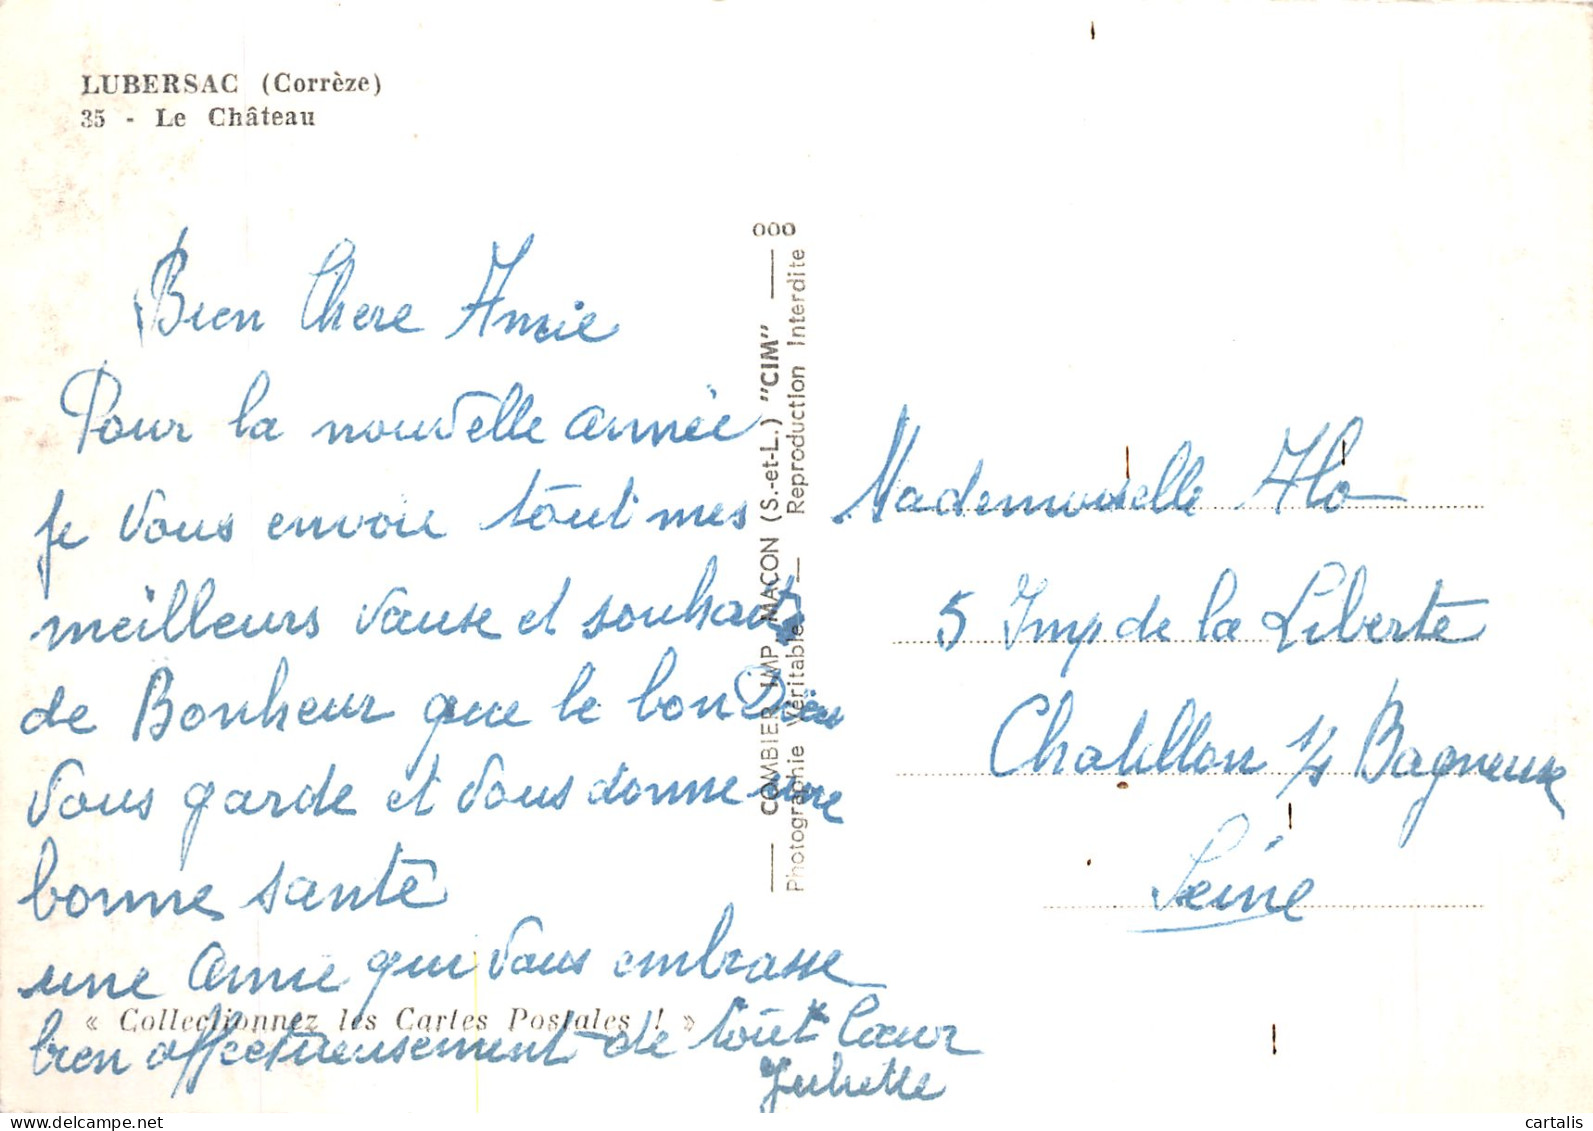 LUBERSAC (Corrèze)
35 - Le Château
Bien Chere Amie
Pour la nouvelle année
je vous envoie tout mes
meilleurs vause et souhait
de Bonheur que le bon Dieu
vous garde et vous donne une
bonne santé
une amie qui vous embrasse
bien affectueusement de tout Cœur
Juliette
« Collectionnez les Cartes Postales ! »
000
COMBIER IMP. MACON (S.-et-L.) "CIM"
Photographie Véritable — Reproduction Interdite
Mademoiselle Alo
5 Imp de la Liberte
Chatillon s/s Bagneux
Seine
cartalis
www.delcampe.net